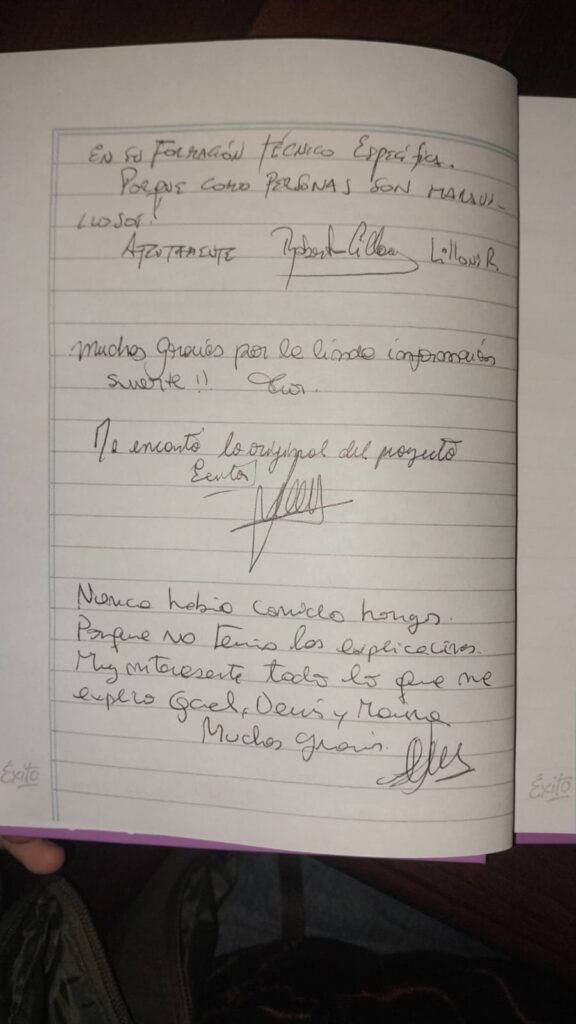 EN SU FORMACIÓN TÉCNICO ESPECÍFICA.
PORQUE COMO PERSONAS SON MARAVI-
LLOSOS!
ATENTAMENTE
muchas gracias por la linda información
suerte!!
Me encantó lo original del proyecto
Nunca había comido hongo.
Porque no tenía las explicativos.
Muy interesante todo lo que me
explico Gael, Denis y
Muchas gracias.
Éxito
Éxito